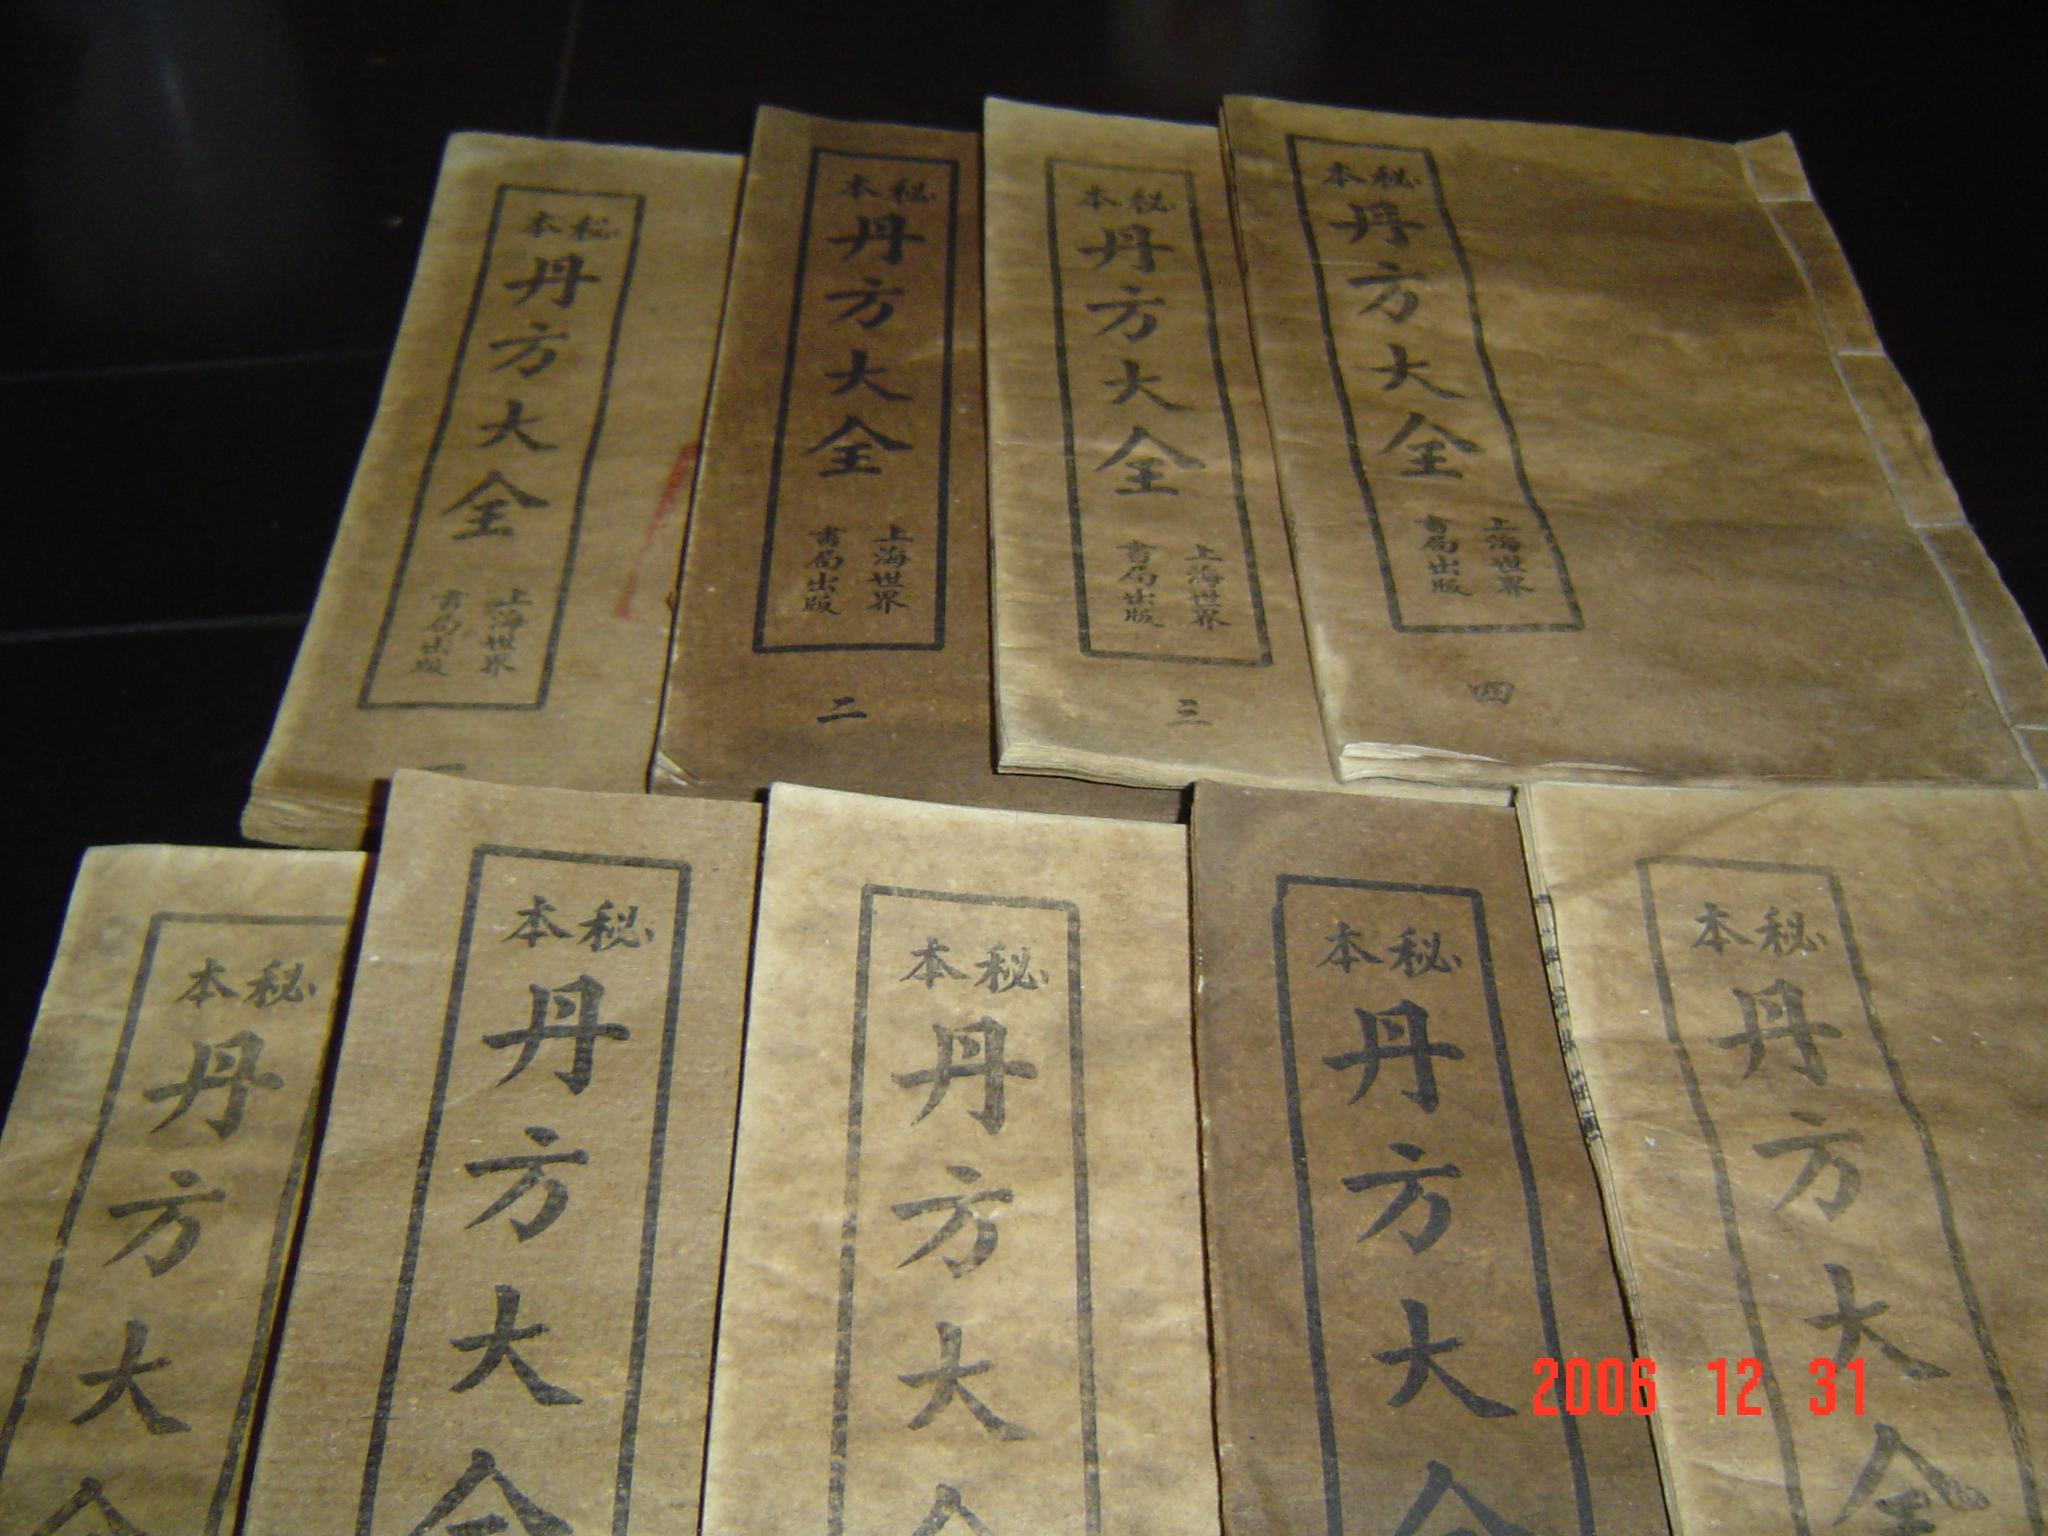 秘本
丹方大全
上海世界
書局出版
一
秘本
丹方大全
上海世界
書局出版
二
秘本
丹方大全
上海世界
書局出版
三
秘本
丹方大全
上海世界
書局出版
四
秘本
丹方大全
秘本
丹方大全
秘本
丹方大全
秘本
丹方大全
秘本
丹方大全
2006 12 31